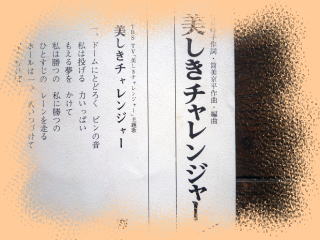 美しきチャレンジャー
作詞・筒美京平作曲・編曲
TBSTV"美しきチャレンジャー"主題歌
美しきチャレンジャー
一、ドームにとどろく ピンの音
私は投げる 力いっぱい
もえる夢を かけて
私は勝つの 私に勝つの
ひとすじの レーンを走る
ボールは一